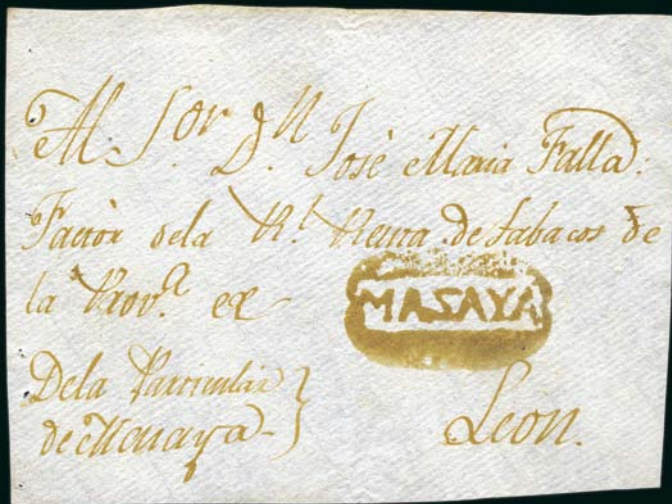 Al Sor. Dn José Maria Falla.
Factòr dela Rl. Renta de tabacos de
la Provª. en
MASAYA
Dela Particular
de Masaya
León.